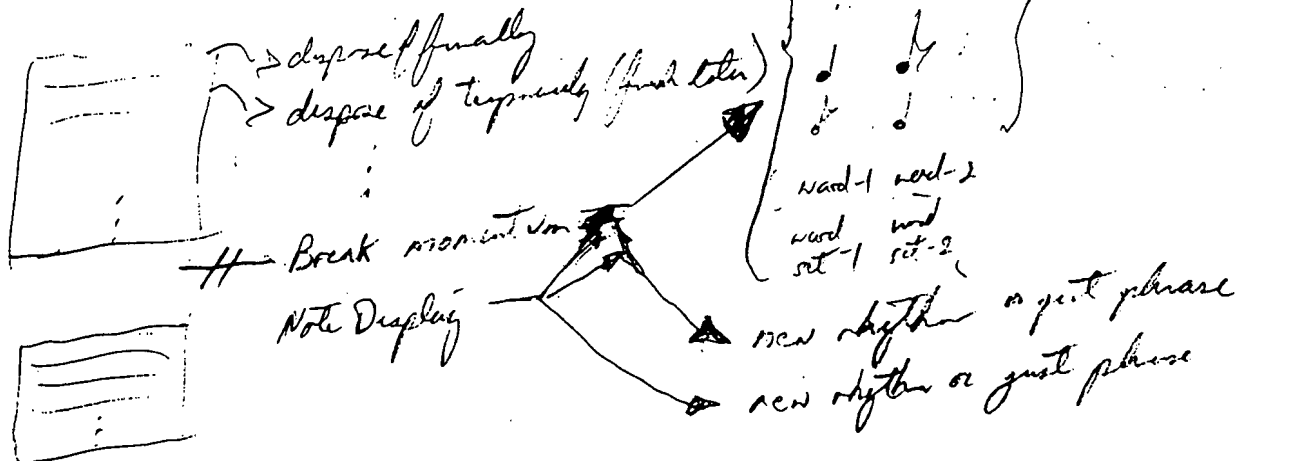 dispose of finally
dispose of temporarily (finish later)
word-1 word-2
word word
set-1 set-2
Break momentum
Note Display
new rhythm or just phrase
new rhythm or just phrase